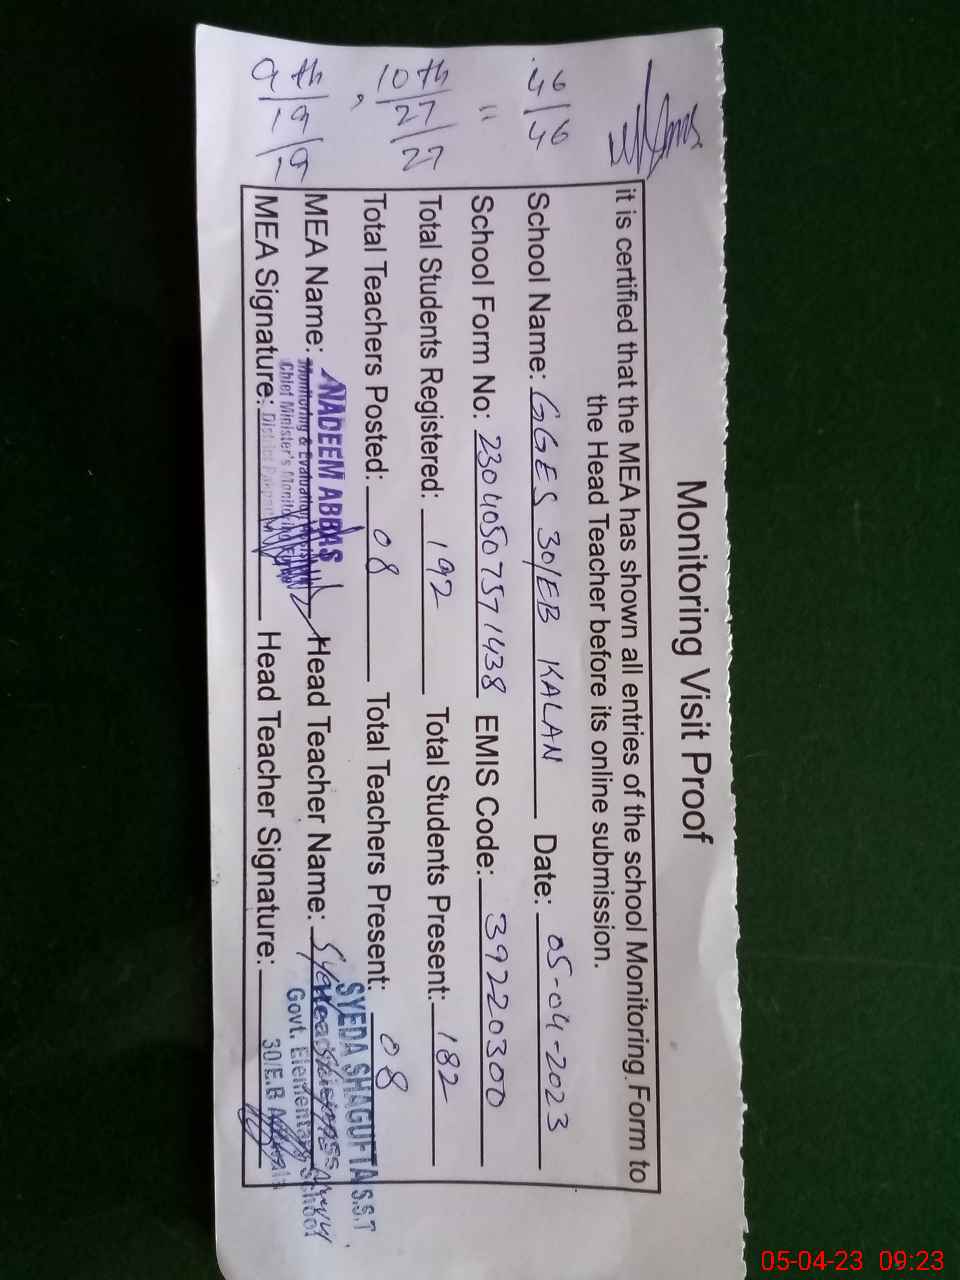 Monitoring Visit Proof
it is certified that the MEA has shown all entries of the school Monitoring Form to
the Head Teacher before its online submission.
School Name: GGES 30/EB KALAN Date: 05-04-2023
School Form No: 23040507571438 EMIS Code: 39220300
Total Students Registered: 192 Total Students Present: 182
Total Teachers Posted: 08 Total Teachers Present: 08
MEA Name: NADEEM ABBAS Head Teacher Name: SYEDA SHAGUFTA S.S.T
Monitoring & Evaluation
Chief Minister's Monitoring
Govt. Elementary School
MEA Signature: District Head Teacher Signature: 30/E.B
46/46
"
10th/27/27
9th/19/19
05-04-23 09:23